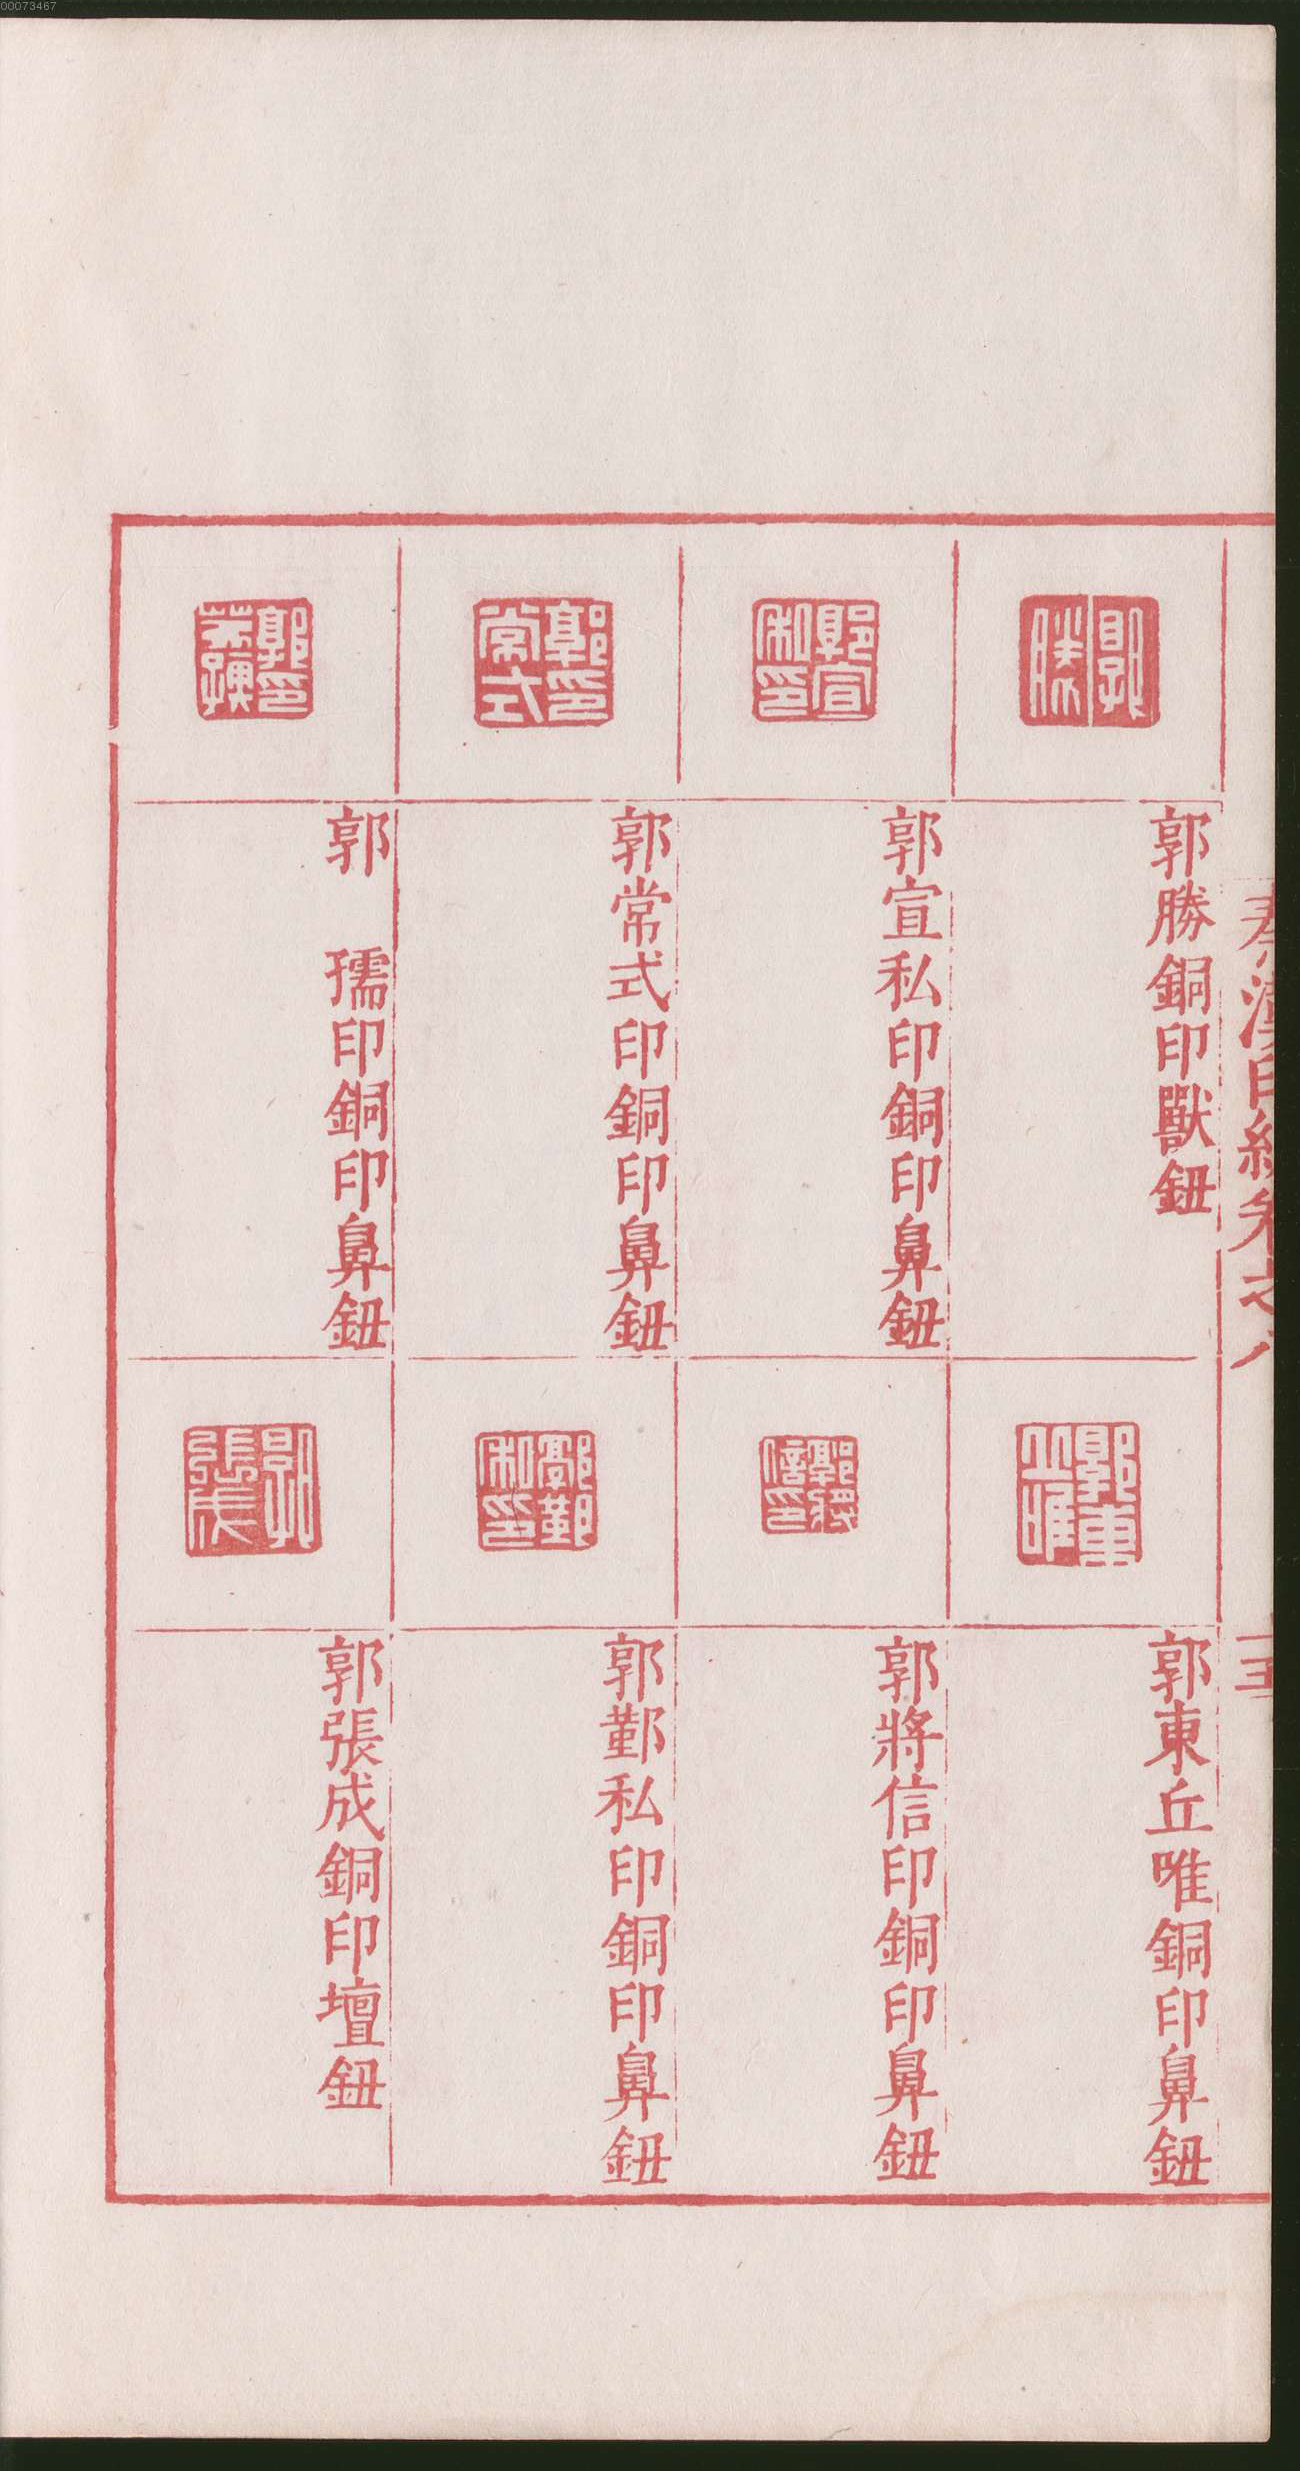 00073467
郭勝銅印獸鈕
郭宣私印銅印鼻鈕
郭常式印銅印鼻鈕
郭　孺印銅印鼻鈕
郭東丘唯銅印鼻鈕
郭將信印銅印鼻鈕
郭鄞私印銅印鼻鈕
郭張成銅印壇鈕
郭勝
郭宣私印
郭印常式
郭東丘唯
郭將信印
郭鄞私印
郭張成